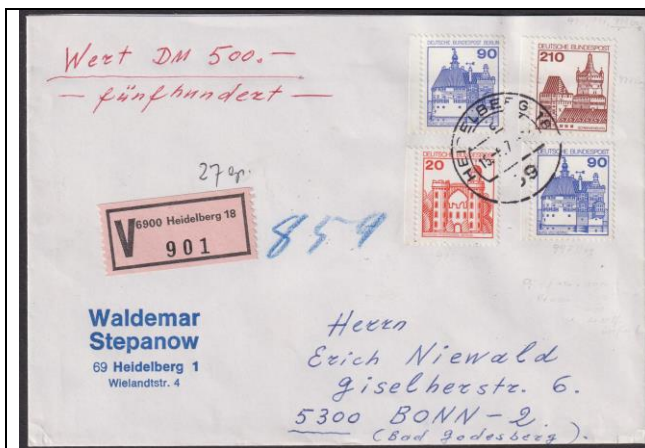 Wert DM 500.—
— fünfhundert —
DEUTSCHE BUNDESPOST BERLIN
90
DEUTSCHE BUNDESPOST
210
20
90
HEIDELBERG 16
27 gr.
V
6900 Heidelberg 18
901
859
Waldemar
Stepanow
69 Heidelberg 1
Wielandtstr. 4
Herrn
Erich Niewald
Giselherstr. 6.
5300 BONN-2
(Bad Godesberg).